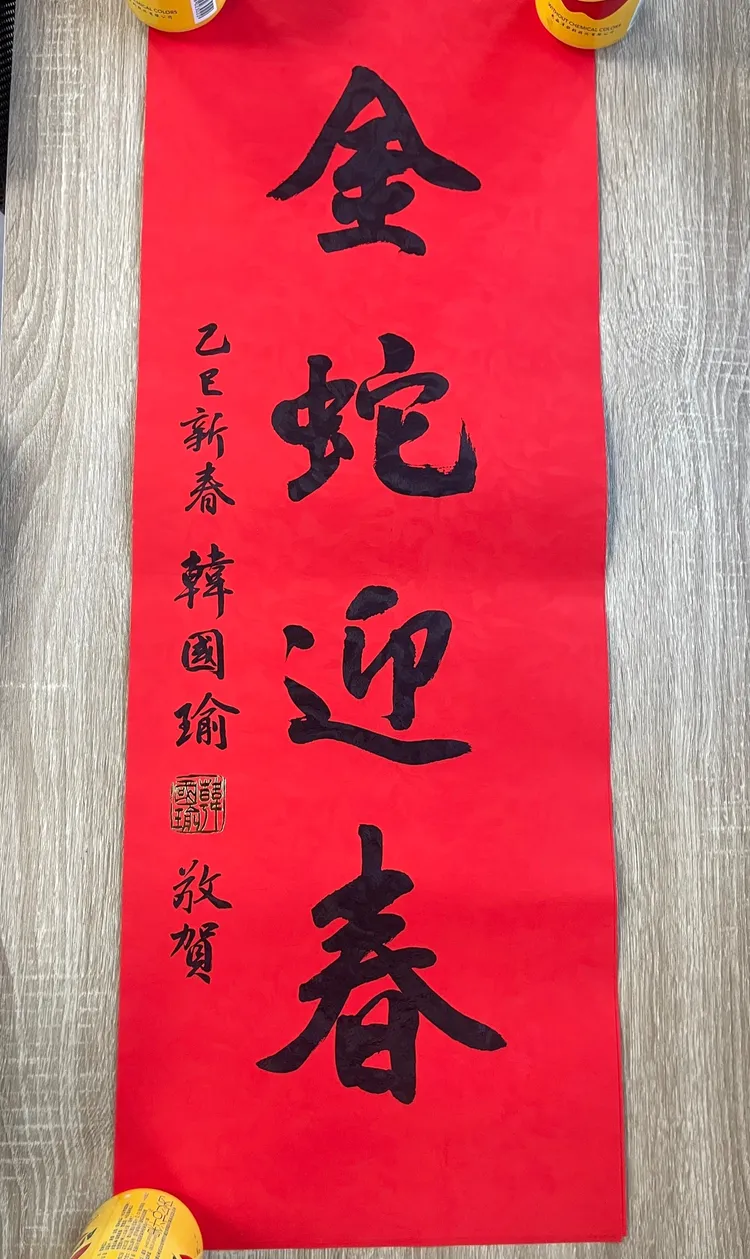 金蛇迎春
乙巳新春 韓國瑜 敬賀
韓國瑜
CHEMICAL COLORS
WITHOUT CHEMICAL COLORS